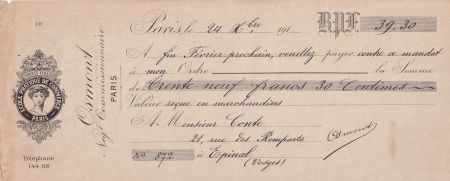 19
Paris, le 24 Xbre 191 B.P.F. 39.30
A fin Février prochain, veuillez payer contre ce mandat
à mon Ordre la Somme
de Trente neuf francs 30 Centimes
Valeur reçue en marchandises
A Monsieur Conte
21, rue des Remparts
No 872 à Epinal
(Vosges)
Osmont
Osmont
Négt Commissionnaire
PARIS
ECOLE PRATIQUE DE COMMERCE
PARIS
Téléphone
144.66